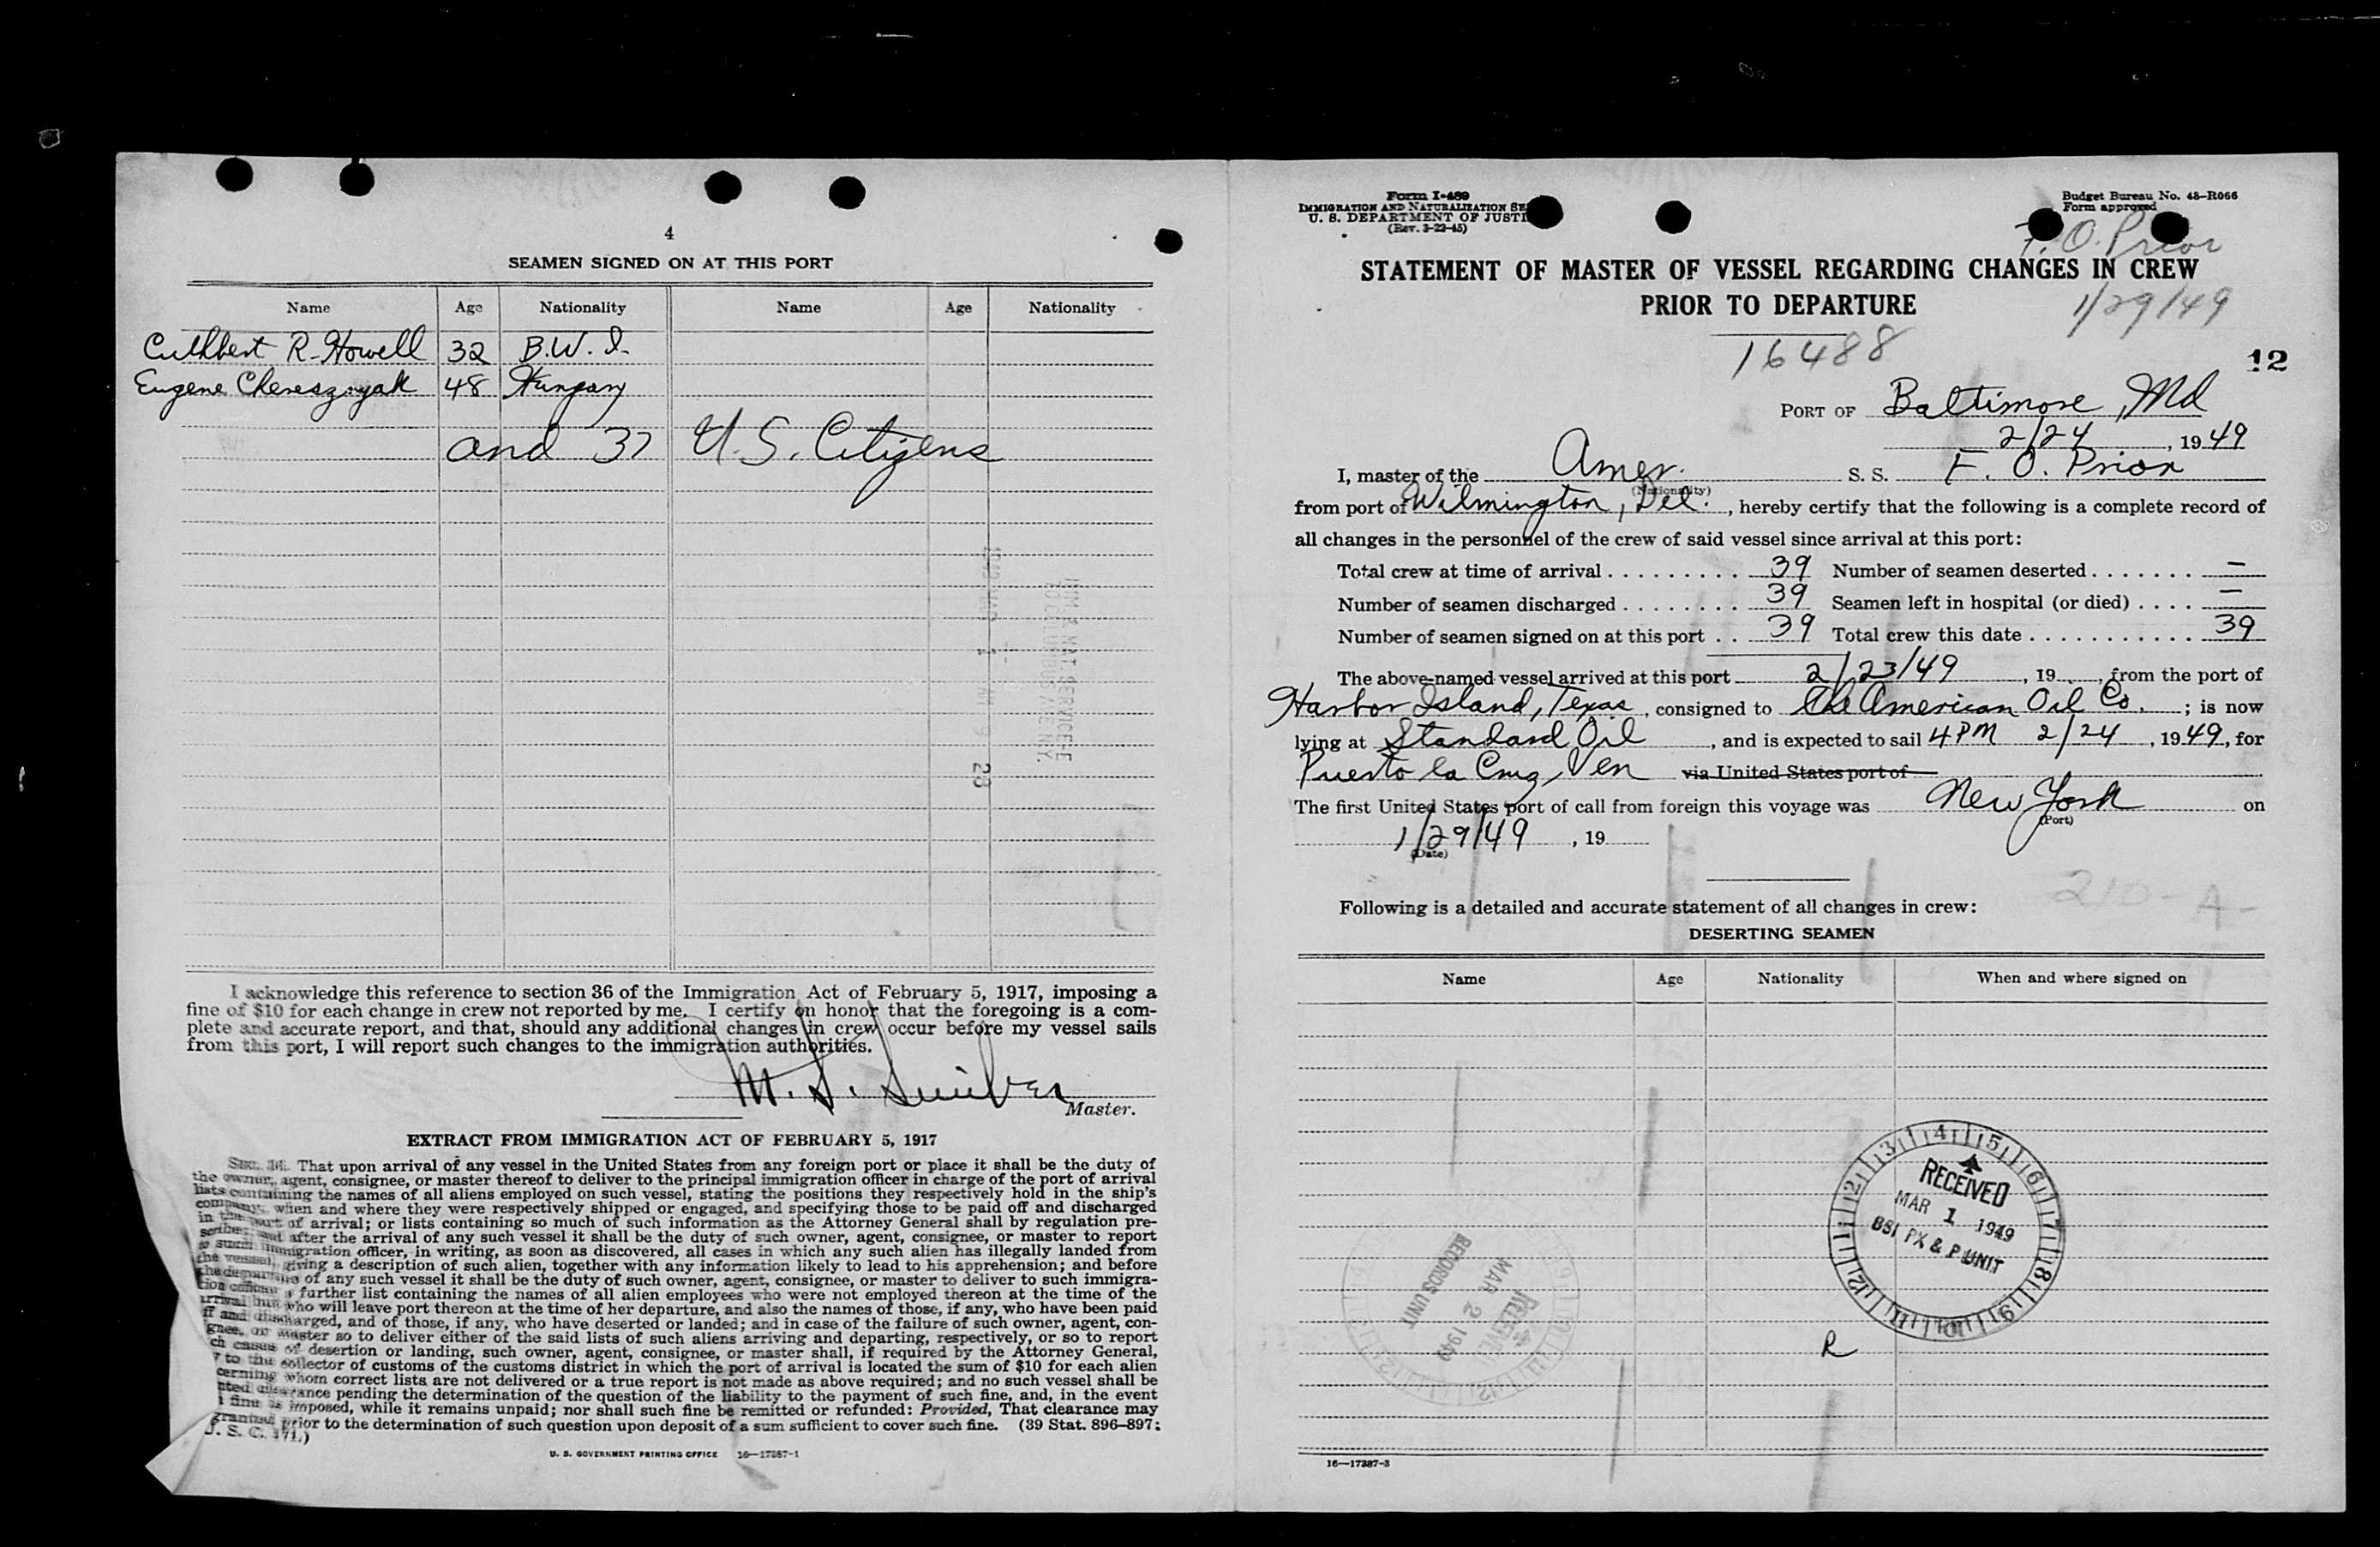 4
SEAMEN SIGNED ON AT THIS PORT
Name Age Nationality Name Age Nationality
Cuthbert R. Howell 32 B.W.I.
Eugene 48 Hungary
and 37 U.S. Citizens
IMM & NAT. SERVICE
70 COLUMBUS AVE NY.
I acknowledge this reference to section 36 of the Immigration Act of February 5, 1917, imposing a
fine of $10 for each change in crew not reported by me. I certify on honor that the foregoing is a com-
plete and accurate report, and that, should any additional changes in crew occur before my vessel sails
from this port, I will report such changes to the immigration authorities.
M. S.
Master.
EXTRACT FROM IMMIGRATION ACT OF FEBRUARY 5, 1917
SEC. 36. That upon arrival of any vessel in the United States from any foreign port or place it shall be the duty of
the owner, agent, consignee, or master thereof to deliver to the principal immigration officer in charge of the port of arrival
lists containing the names of all aliens employed on such vessel, stating the positions they respectively hold in the ship's
company, when and where they were respectively shipped or engaged, and specifying those to be paid off and discharged
in the port of arrival; or lists containing so much of such information as the Attorney General shall by regulation pre-
scribe; and after the arrival of any such vessel it shall be the duty of such owner, agent, consignee, or master to report
to such immigration officer, in writing, as soon as discovered, all cases in which any such alien has illegally landed from
the vessel, giving a description of such alien, together with any information likely to lead to his apprehension; and before
the departure of any such vessel it shall be the duty of such owner, agent, consignee, or master to deliver to such immigra-
tion officer a further list containing the names of all alien employees who were not employed thereon at the time of the
arrival but who will leave port thereon at the time of her departure, and also the names of those, if any, who have been paid
ff and discharged, and of those, if any, who have deserted or landed; and in case of the failure of such owner, agent, con-
gnee, or master so to deliver either of the said lists of such aliens arriving and departing, respectively, or so to report
ch cases of desertion or landing, such owner, agent, consignee, or master shall, if required by the Attorney General,
y to the collector of customs of the customs district in which the port of arrival is located the sum of $10 for each alien
cerning whom correct lists are not delivered or a true report is not made as above required; and no such vessel shall be
nted clearance pending the determination of the question of the liability to the payment of such fine, and, in the event
fine is imposed, while it remains unpaid; nor shall such fine be remitted or refunded: Provided, That clearance may
granted prior to the determination of such question upon deposit of a sum sufficient to cover such fine. (39 Stat. 896-897;
U. S. C. 171.)
U. S. GOVERNMENT PRINTING OFFICE 16—17387-1
Form I-489
IMMIGRATION AND NATURALIZATION SE
U. S. DEPARTMENT OF JUSTI
(Rev. 3-22-45)
Budget Bureau No. 43-R066
Form approved
F. O. Prior
STATEMENT OF MASTER OF VESSEL REGARDING CHANGES IN CREW
PRIOR TO DEPARTURE
1/29/49
16488
12
PORT OF Baltimore, Md
2/24, 1949
I, master of the Amer. S. S. F. O. Prior
(Nationality)
from port of Wilmington, Del., hereby certify that the following is a complete record of
all changes in the personnel of the crew of said vessel since arrival at this port:
Total crew at time of arrival . . . . . . . . . 39 Number of seamen deserted . . . . . . . —
Number of seamen discharged . . . . . . . . 39 Seamen left in hospital (or died) . . . . —
Number of seamen signed on at this port . . 39 Total crew this date . . . . . . . . . . . 39
The above-named vessel arrived at this port 2/23/49, 19 , from the port of
Harbor Island, Texas, consigned to The American Oil Co. ; is now
lying at Standard Oil, and is expected to sail 4 PM 2/24, 1949, for
Puerto la Cruz, Ven via United States port of
The first United States port of call from foreign this voyage was New York on
(Port)
1/29/49, 19
(Date)
210-A-
Following is a detailed and accurate statement of all changes in crew:
DESERTING SEAMEN
Name Age Nationality When and where signed on
RECEIVED
MAR 1 1949
BSI PX & P UNIT
RECEIVED
MAR 2 1949
RECORDS UNIT
R
16—17387-3